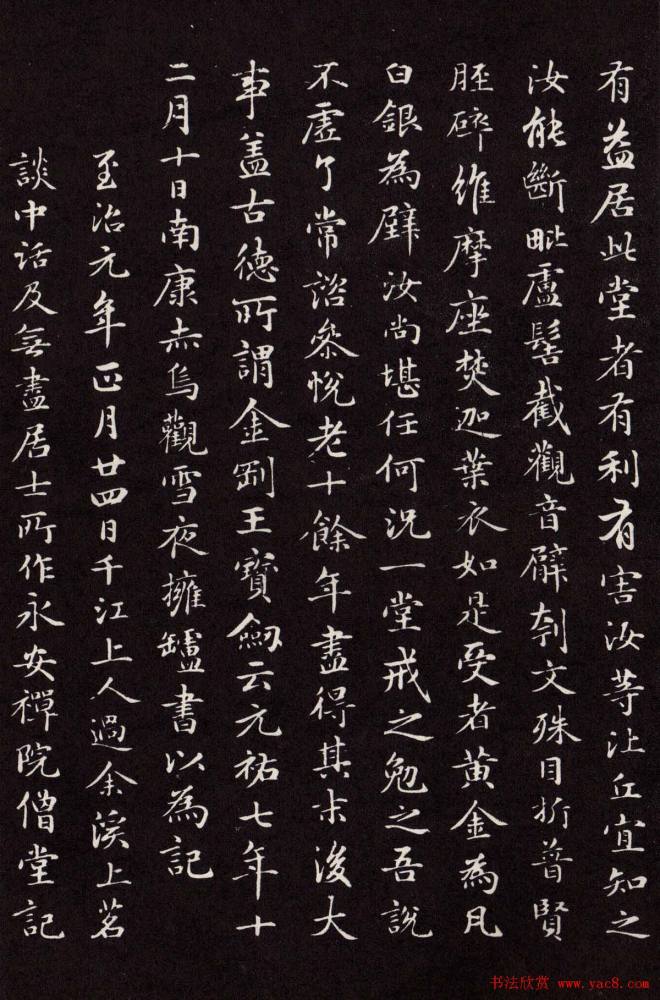 有益居此堂者有利有害汝等比丘宜知之
汝能斷毗盧髻截觀音臂刳文殊目折普賢
脛碎維摩座焚迦葉衣如是受者黃金為瓦
白銀為壁汝尚堪任何況一堂戒之勉之吾說
不虛了常諮參悅老十餘年盡得其末後大
事蓋古德所謂金剛王寶劒云元祐七年十
二月十日南康赤烏觀雪夜擁鑪書以為記
至治元年正月廿四日千江上人過余溪上茗
談中話及無盡居士所作永安禪院僧堂記
书法欣赏 www.yac8.com